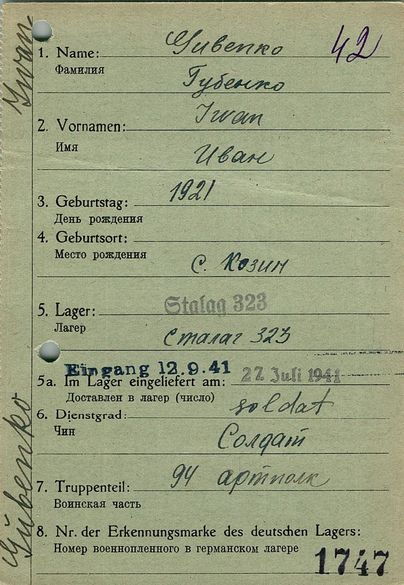 1. Name: Gubenko 42
Фамилия Губенко
2. Vornamen: Iwan
Имя Иван
3. Geburtstag: 1921
День рождения
4. Geburtsort:
Место рождения с. Козин
5. Lager: Stalag 323
Лагер Сталаг 323
Eingang 12.9.41
5a. Im Lager eingeliefert am: 27. Juli 1941
Доставлен в лагер (число)
6. Dienstgrad: soldat
Чин Солдат
7. Truppenteil: 94 артполк
Воинская часть
8. Nr. der Erkennungsmarke des deutschen Lagers:
Номер военнопленного в германском лагере 1747
Gubenko Iwan